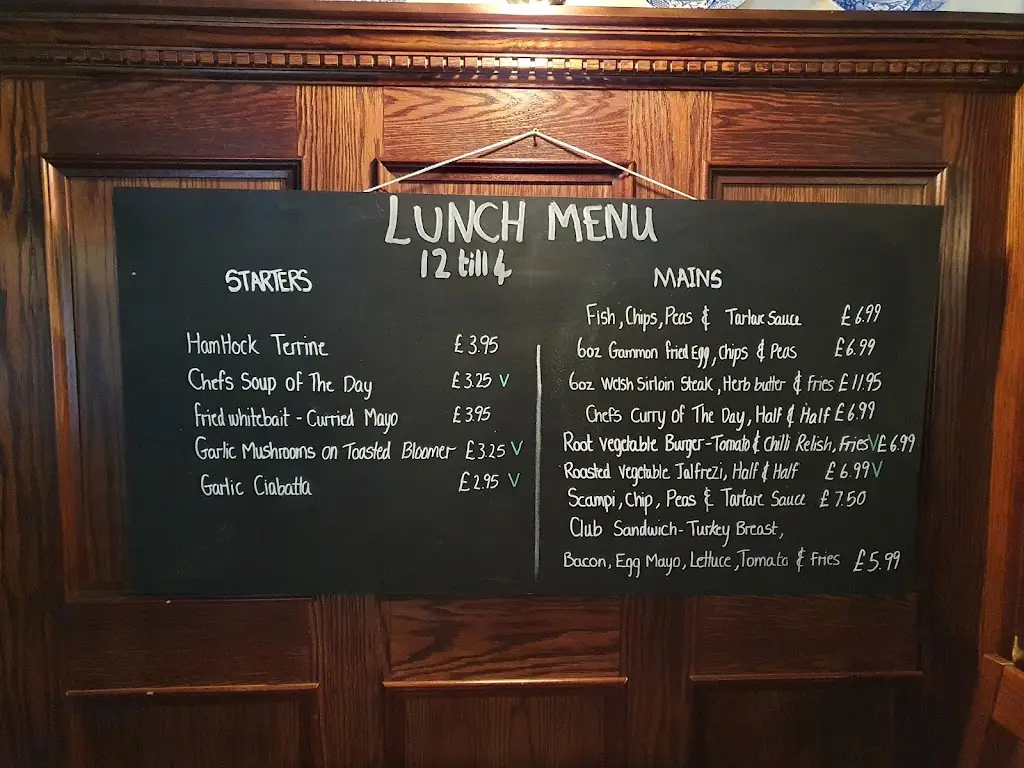 LUNCH MENU
12 till 4
STARTERS
HamHock Terrine £3.95
Chefs Soup of The Day £3.25 V
Fried whitebait - Curried Mayo £3.95
Garlic Mushrooms on Toasted Bloomer £3.25 V
Garlic Ciabatta £2.95 V
MAINS
Fish, Chips, Peas & Tartar Sauce £6.99
6oz Gammon fried Egg, Chips & Peas £6.99
6oz Welsh Sirloin Steak, Herb butter & Fries £11.95
Chefs Curry of The Day, Half & Half £6.99
Root Vegetable Burger - Tomato & Chilli Relish, Fries V £6.99
Roasted Vegetable Jalfrezi, Half & Half £6.99 V
Scampi, Chip, Peas & Tartare Sauce £7.50
Club Sandwich - Turkey Breast,
Bacon, Egg Mayo, Lettuce, Tomato & Fries £5.99